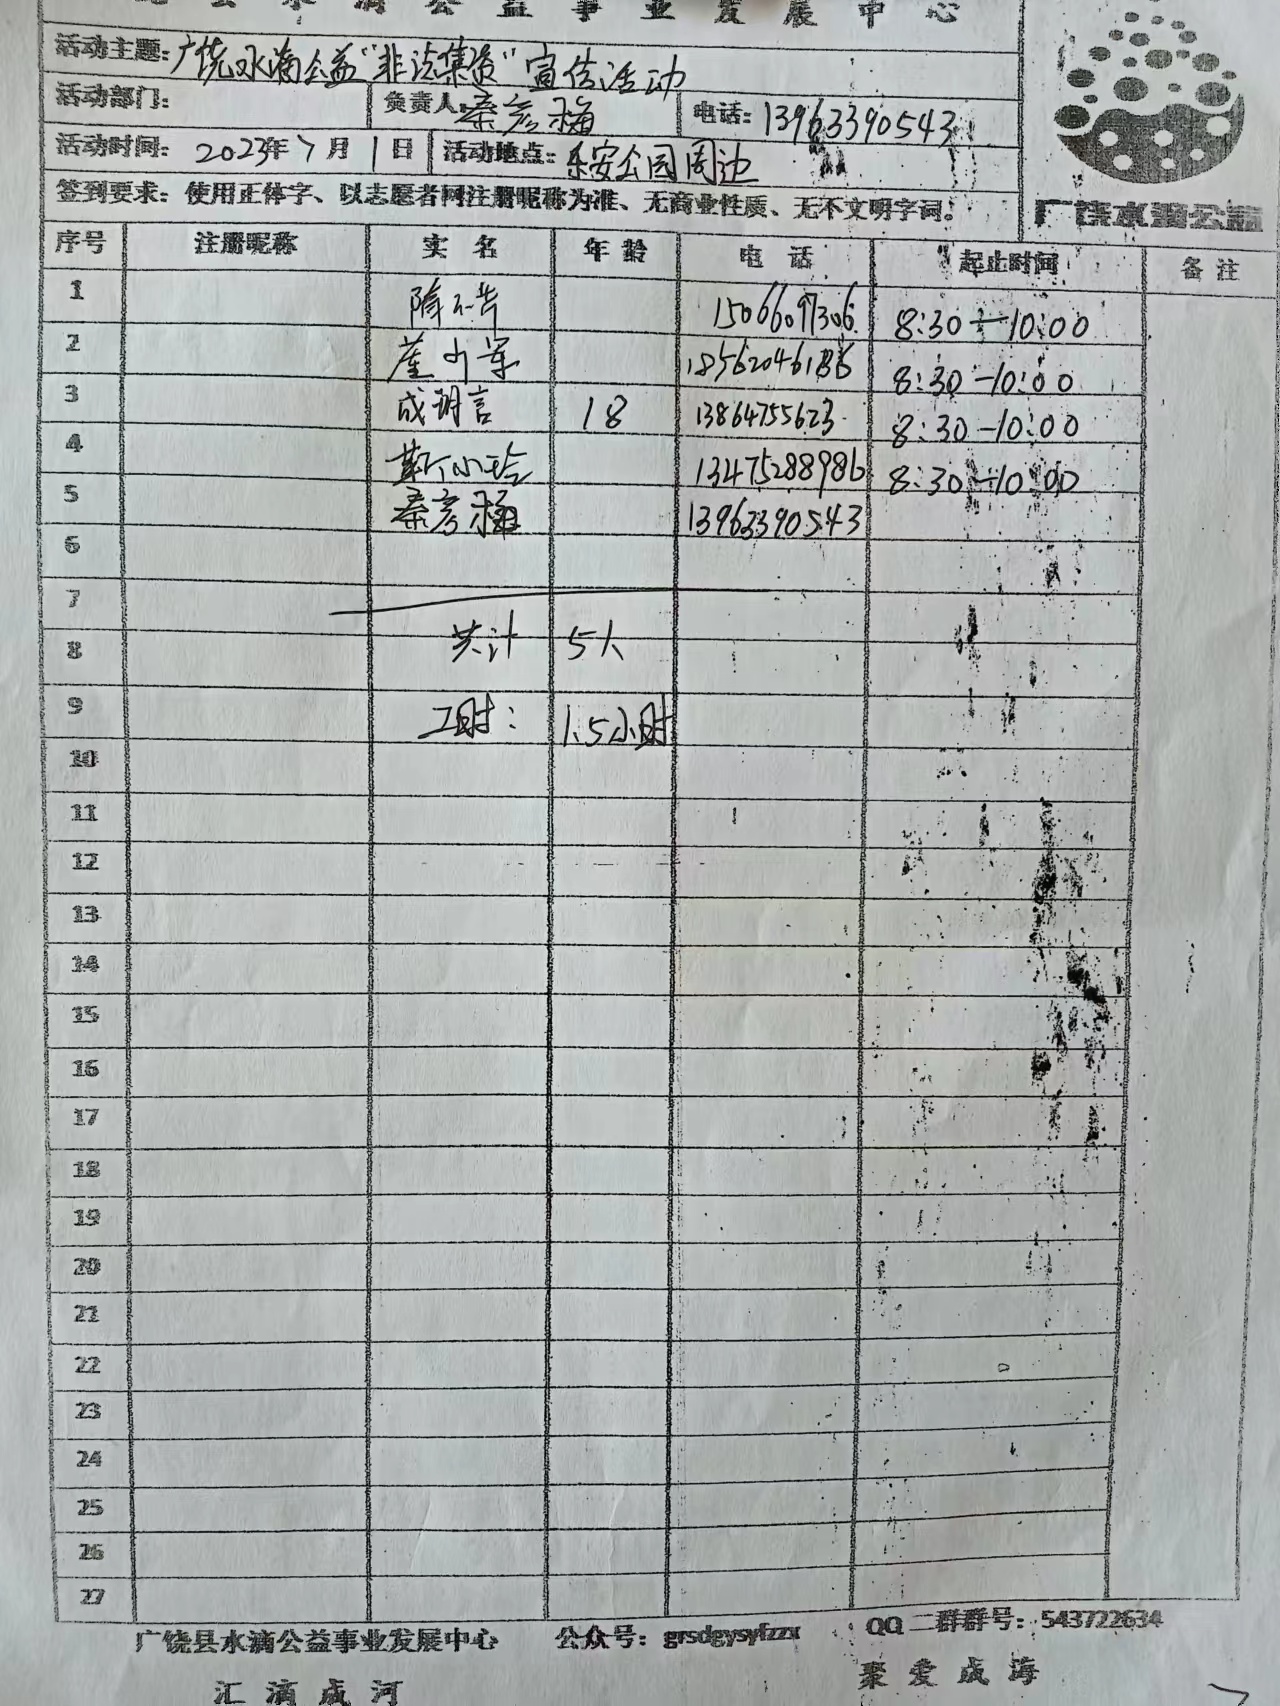 县水滴公益事业发展中心
活动主题：广饶水滴公益“非法集资”宣传活动
活动部门： 负责人：秦彦梅 电话：13963390543
活动时间：2023年7月1日 活动地点：乐安公园周边
签到要求：使用正体字、以志愿者网注册昵称为准、无商业性质、无不文明字词。
广饶水滴公益
序号 注册昵称 实名 年龄 电话 起止时间 备注
1 15066097306 8:30-10:00
2 崔小军 8:30-10:00
3 成玥言 18 13864755623 8:30-10:00
4 靳小玲 13475288986 8:30-10:00
5 秦彦梅 13963390543
6
7
8 共计 5人
9 工时： 1.5小时
10
11
12
13
14
15
16
17
18
19
20
21
22
23
24
25
26
27
广饶县水滴公益事业发展中心 公众号：grsdgysyfzzx QQ二群群号：543722634
汇滴成河 聚爱成海